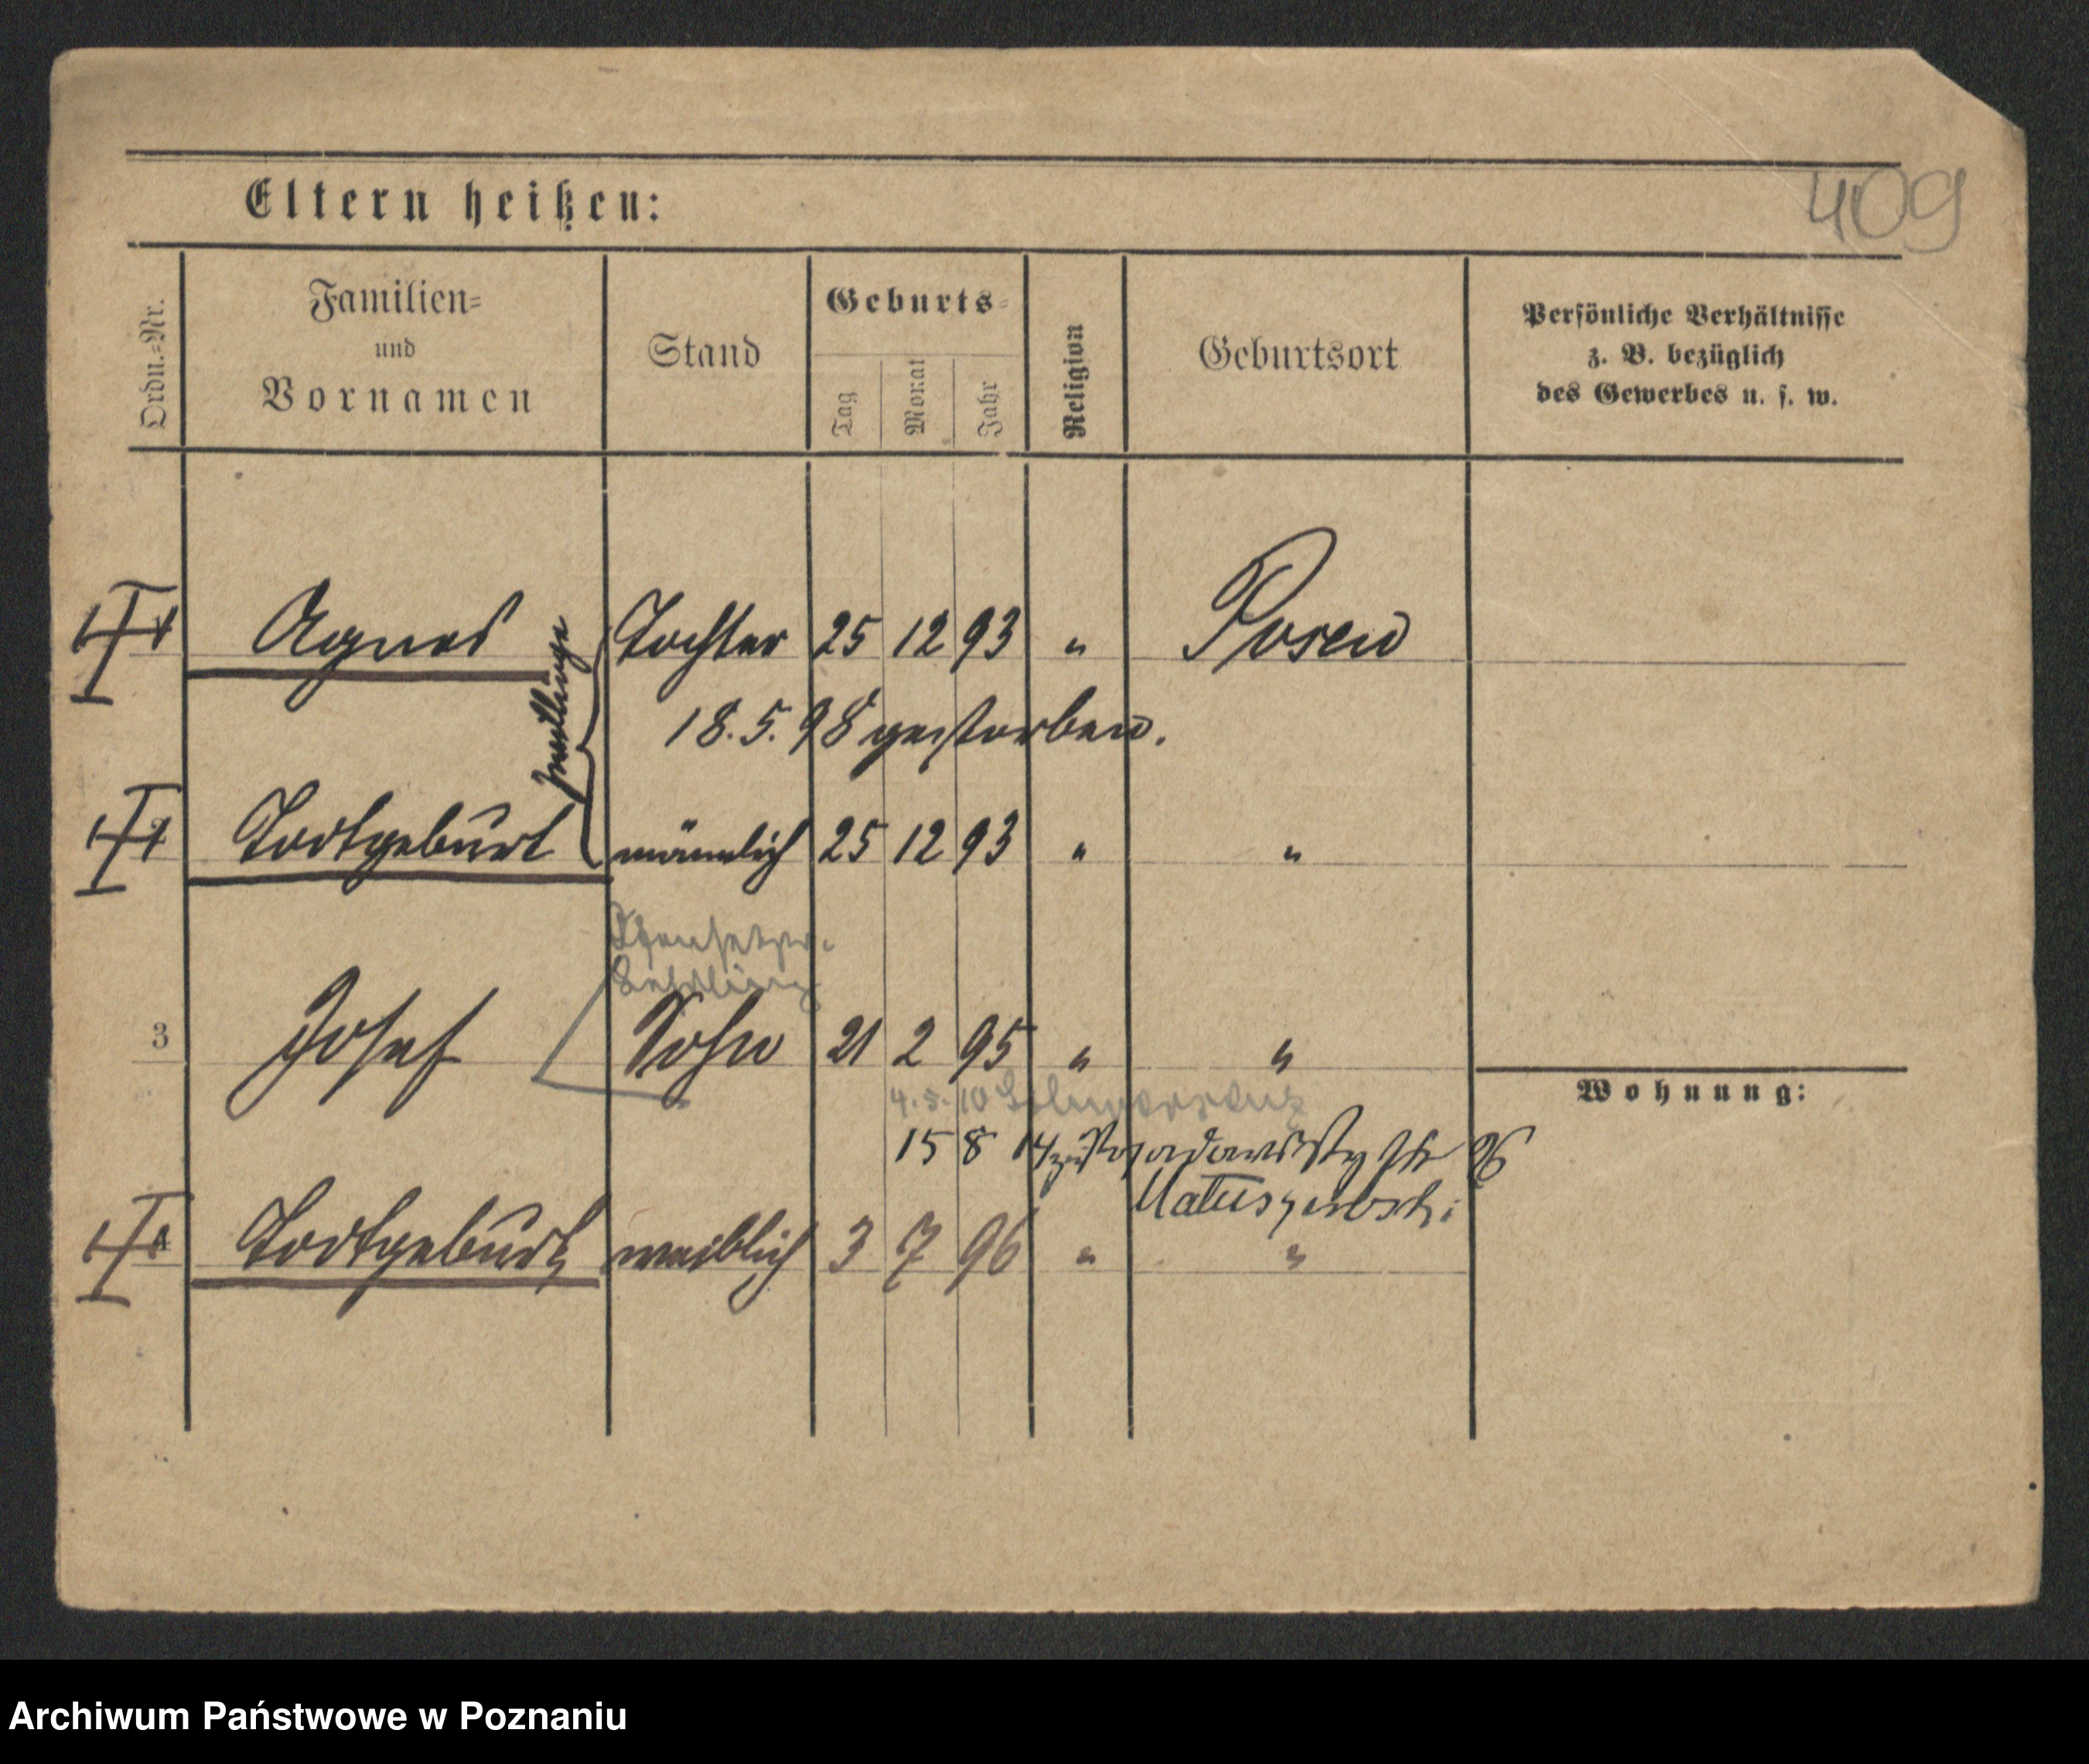 409
Eltern heißen:
Ordn.-Nr.
Familien-
und
Vornamen
Stand
Geburts-
Tag
Monat
Jahr
Religion
Geburtsort
Persönliche Verhältnisse
z. B. bezüglich
des Gewerbes u. s. w.
Agnes Tochter 25 12 93 " Posen
Zwillinge
18.5.98 gestorben.
Todtgeburt männlich 25 12 93 " "
Ofensetzer-
Lehrling
3 Josef Sohn 21 2 95 " "
4.5.10 Schwersenz
Wohnung:
15 8 14 zu Posadowsky Str 26
4 Todtgeburt weiblich 3 7 96 " "
Archiwum Państwowe w Poznaniu